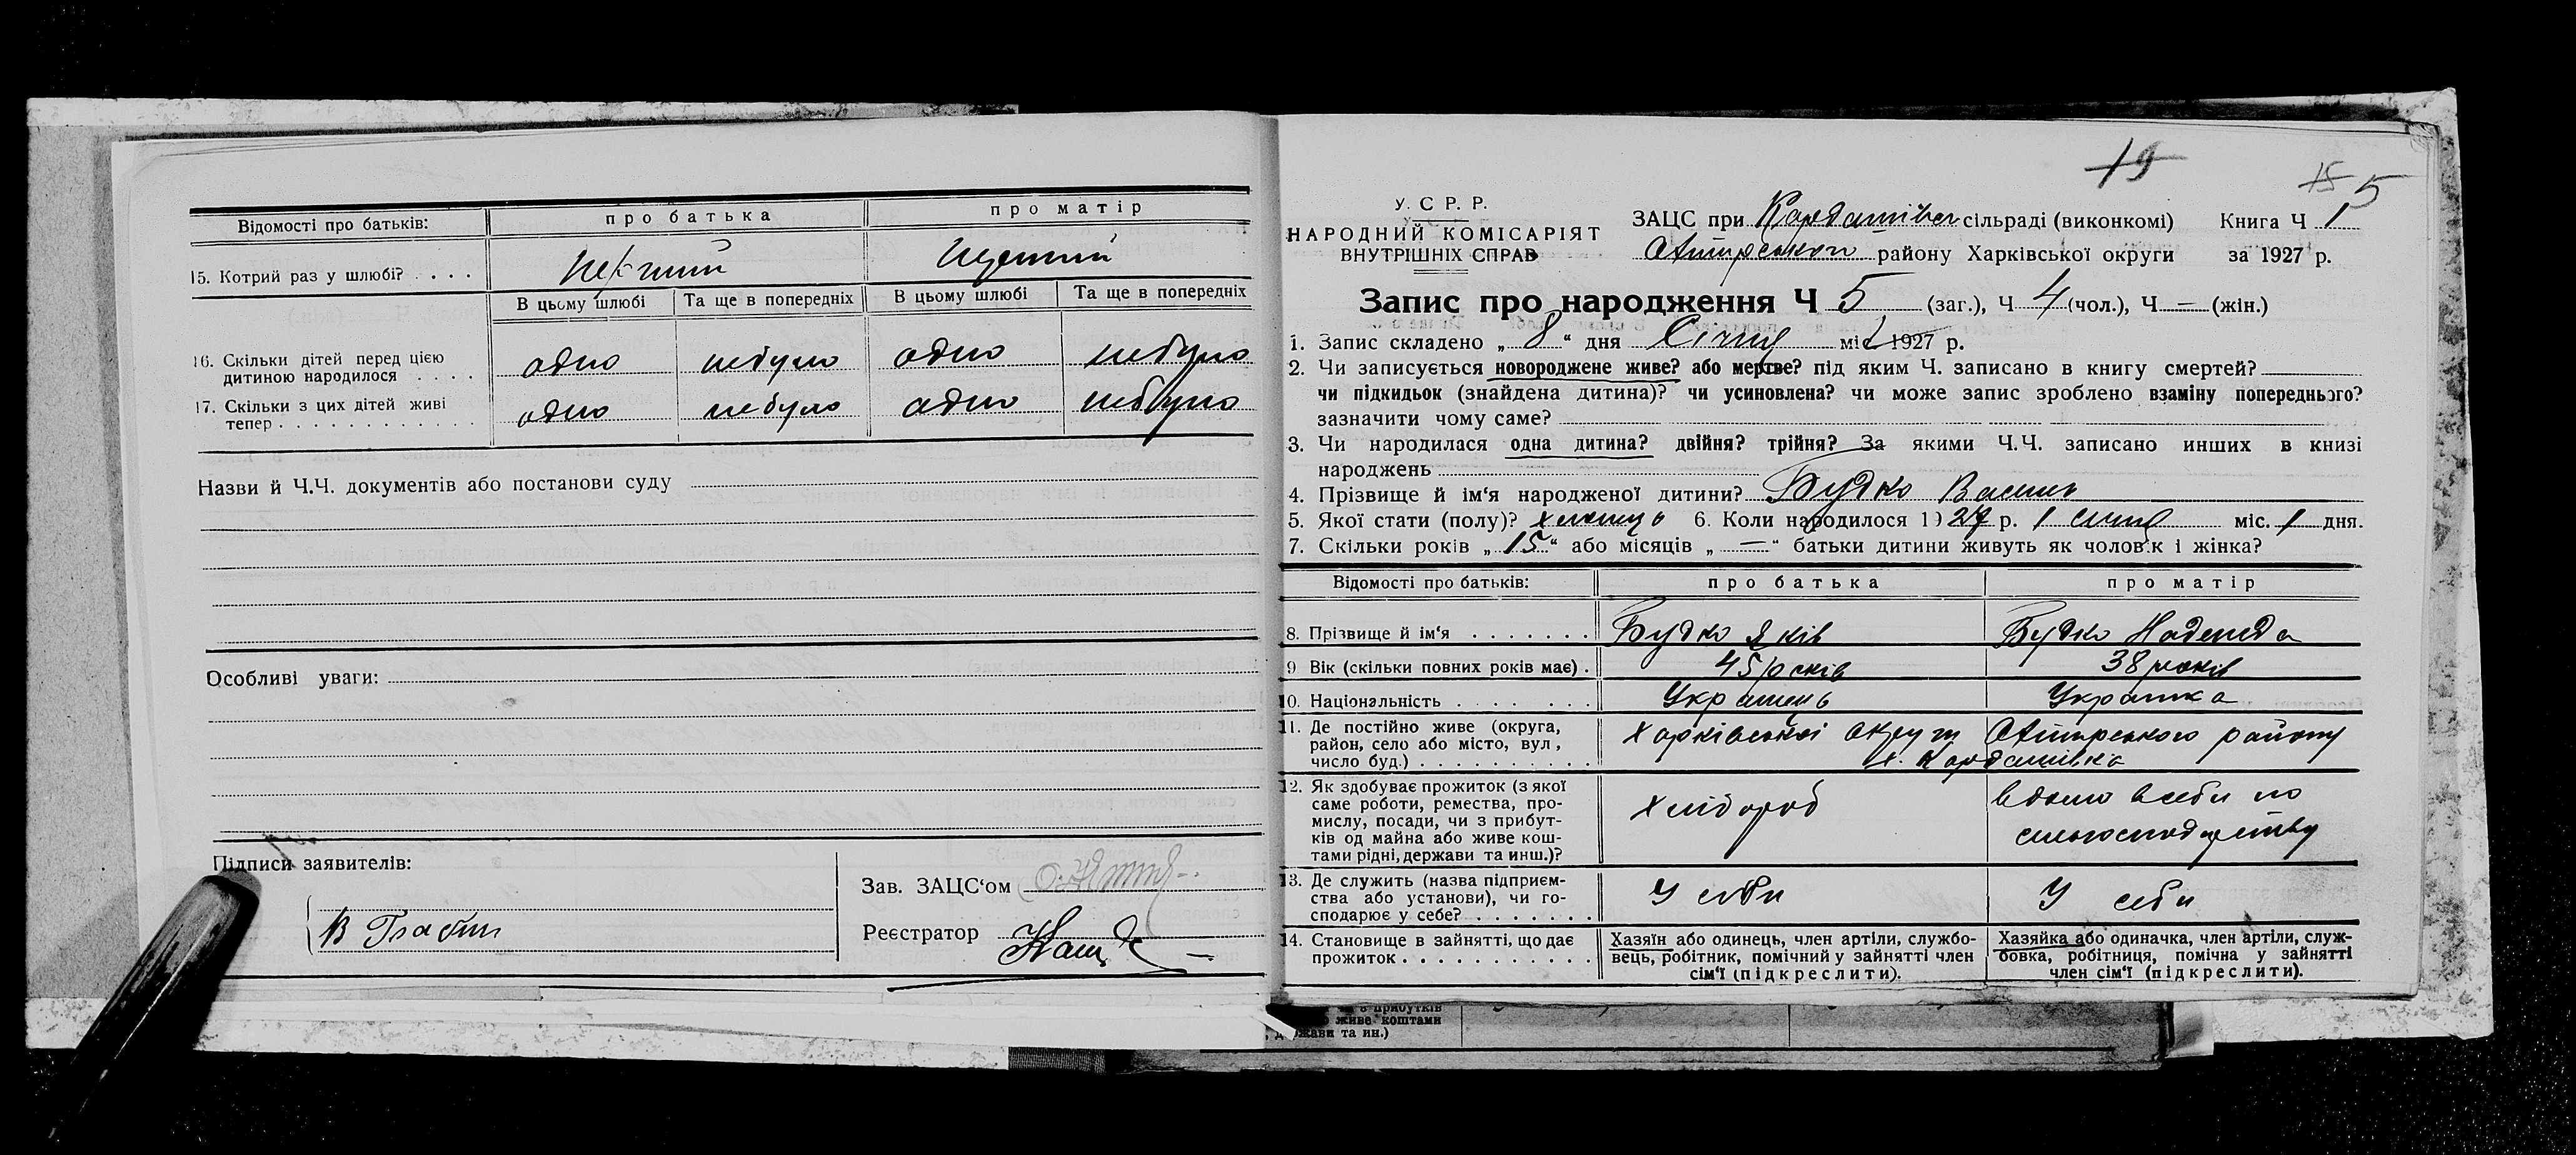 Відомості про батьків: про батька про матір
15. Котрий раз у шлюбі? . . . . Перший Перший
В цьому шлюбі Та ще в попередніх В цьому шлюбі Та ще в попередніх
16. Скільки дітей перед цією
дитиною народилося . . . . одно небуло одно небуло
17. Скільки з цих дітей живі
тепер . . . . . . . . . . . . одно небуло одно небуло
Назви й Ч.Ч. документів або постанови суду
Особливі уваги:
Підписи заявителів:
Зав. ЗАЦС‘ом
Реєстратор
19
15 5
У. С Р. Р.
НАРОДНИЙ КОМІСАРІЯТ
ВНУТРІШНІХ СПРАВ
ЗАЦС при сільраді (виконкомі) Книга Ч 1
району Харківської округи за 1927 р.
Запис про народження Ч 5 (заг.), Ч 4 (чол.), Ч — (жін.)
1. Запис складено „ 8 “ дня Січня міс 1927 р.
2. Чи записується новороджене живе? або мертве? під яким Ч. записано в книгу смертей?
чи підкидьок (знайдена дитина)? чи усиновлена? чи може запис зроблено взаміну попереднього?
зазначити чому саме?
3. Чи народилася одна дитина? двійня? трійня? За якими Ч.Ч. записано инших в книзі
народжень
4. Прізвище й ім‘я народженої дитини? Будко Василь
5. Якої стати (полу)? хлопець 6. Коли народилося 1927 р. 1 січня міс. 1 дня.
7. Скільки років „ 15 “ або місяців „ — “ батьки дитини живуть як чоловік і жінка?
Відомості про батьків: про батька про матір
8. Прізвище й ім‘я . . . . . . . Будко Яків Будко Надежда
9 Вік (скільки повних років має) . 45 років 38 років
10. Національність . . . . . . Українець Українка
11. Де постійно живе (округа,
район, село або місто, вул,
число буд.) . . . . . . . . . . Харківської округи району
12. Як здобуває прожиток (з якої
саме роботи, ремества, про-
мислу, посади, чи з прибут-
ків од майна або живе кош-
тами рідні, держави та инш.)?
Хлібороб
вдома в себи по
13. Де служить (назва підприєм-
ства або установи), чи го-
сподарює у себе? . . . . . . . У себи У себи
14. Становище в зайнятті, що дає
прожиток . . . . . . . . . . .
Хазяїн або одинець, член артіли, службо-
вець, робітник, помічний у зайнятті член
сім‘ї (підкреслити).
Хазяйка або одиначка, член артіли, служ-
бовка, робітниця, помічна у зайнятті
член сім‘ї (підкреслити).
з прибутків
живе коштами
та ин.)